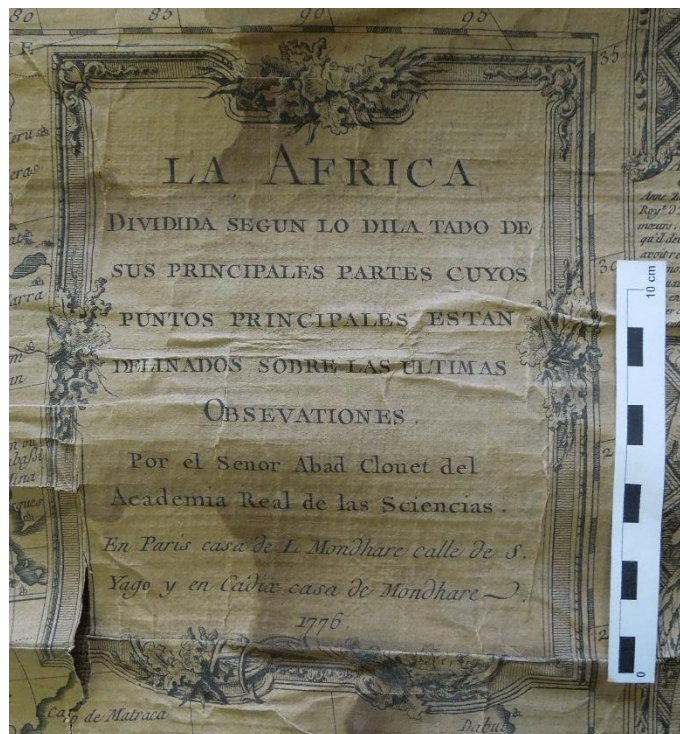 80 85 90 95
E
35
LA AFRICA
DIVIDIDA SEGUN LO DILA TADO DE
SUS PRINCIPALES PARTES CUYOS
PUNTOS PRINCIPALES ESTAN
DELINADOS SOBRE LAS ULTIMAS
OBSEVATIONES.
Por el Senor Abad Clouet del
Academia Real de las Sciencias.
En Paris casa de L. Mondhare calle de S.
Yago y en Cadix casa de Mondhare
1776.
Roy.e
mœurs,
30
10 cm
0
Capo de Matraca
Dabul